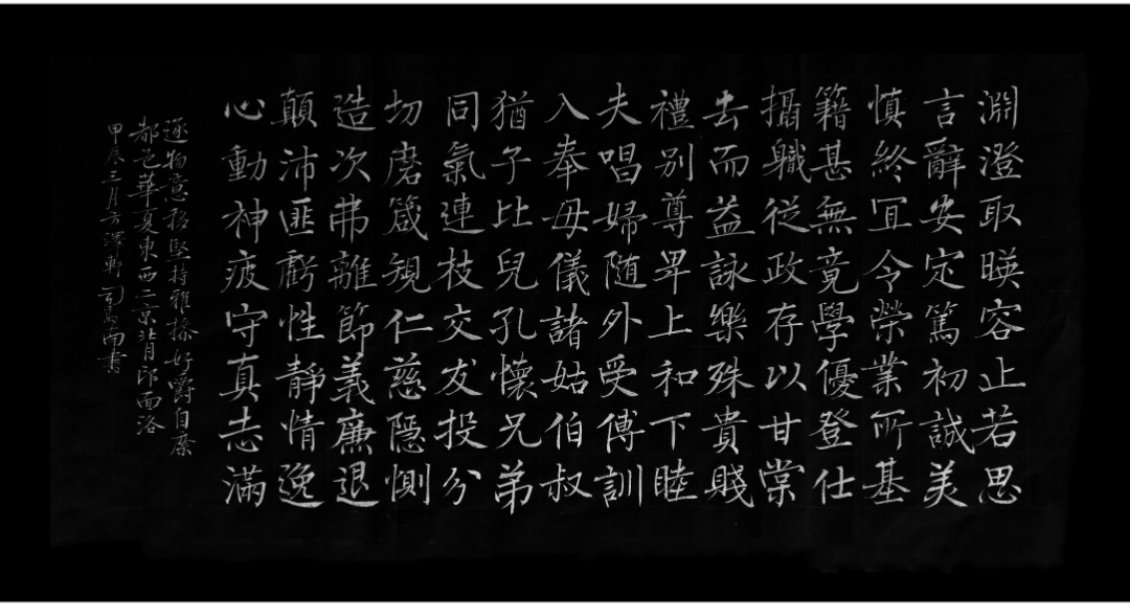 淵澄取暎容止若思
言辭安定篤初誠美
慎終宜令榮業所基
籍甚無竟學優登仕
攝職從政存以甘棠
去而益詠樂殊貴賤
禮別尊卑上和下睦
夫唱婦随外受傅訓
入奉母儀諸姑伯叔
猶子比兒孔懷兄弟
同氣連枝交友投分
切磨箴規仁慈隱惻
造次弗離節義廉退
顛沛匪虧性靜情逸
心動神疲守真志滿
逐物意移堅持雅操好爵自縻
都邑華夏東西二京背邙面洛
甲辰三月方澤軒書